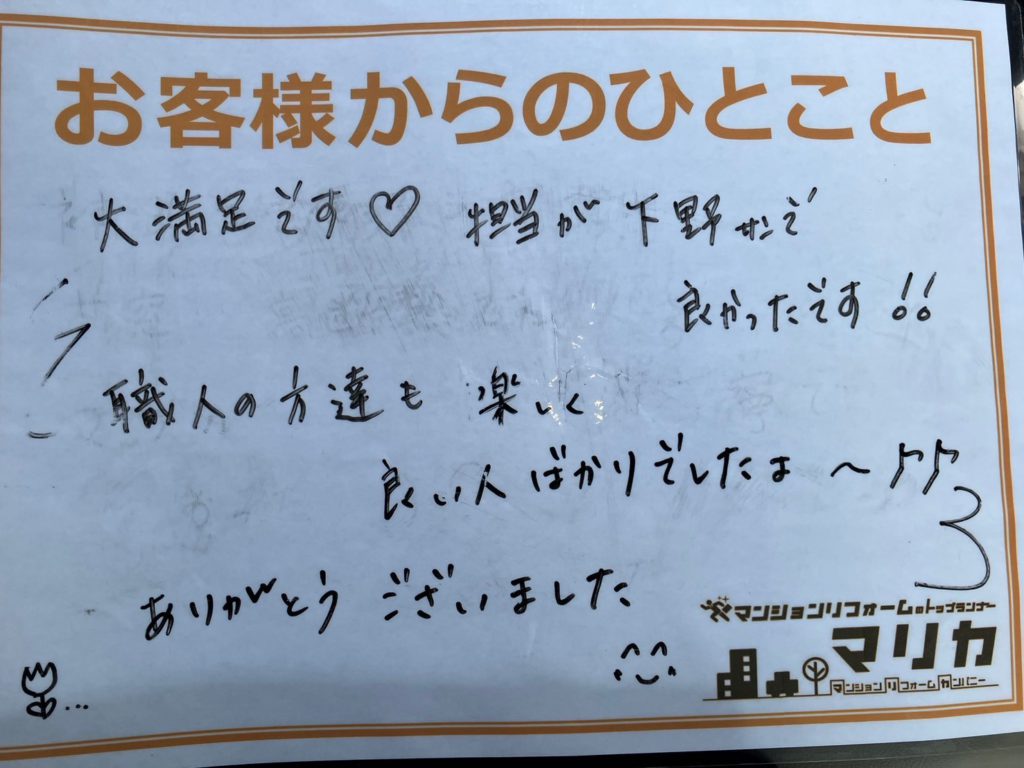 お客様からのひとこと
大満足です♡ 担当が下野サンで
良かったです!!
職人の方達も 楽しく
良い人ばかりでしたよ〜♪♪
ありがとうございました
マンションリフォームのトップランナー
マリカ
マンションリフォームカンパニー